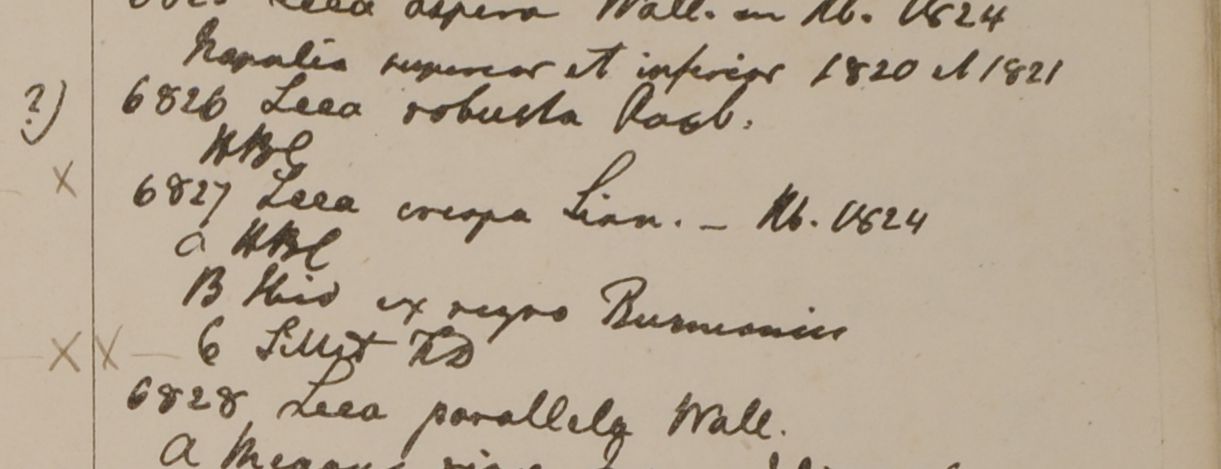 6825 Leea aspera Wall. in Hb. 1824
Napalia superior et inferior 1820 et 1821
?) 6826 Leea robusta Roxb.
HBC
x 6827 Leea crispa Linn. - Hb. 1824
a HBC
B Hid ex regno Burmanico
X X 6 Sillet FD
6828 Leea parallela Wall.
a